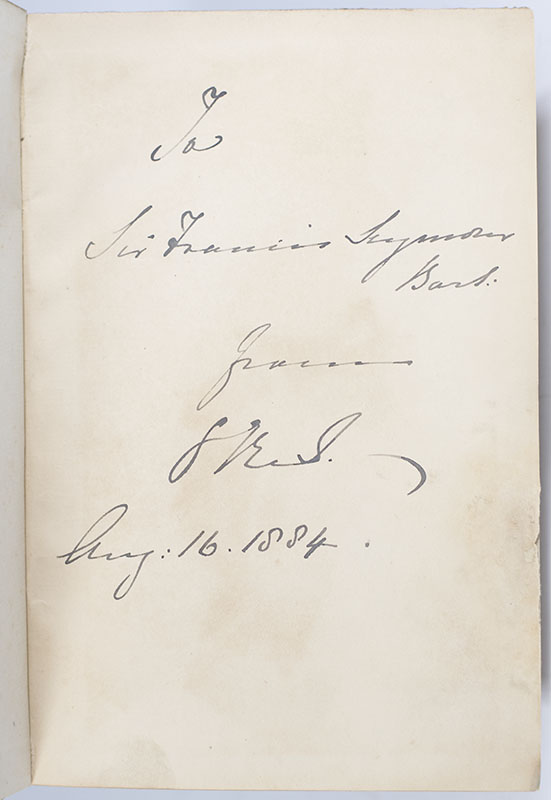 To
Sir Francis Seymour
Bart.
from
Aug: 16. 1884.